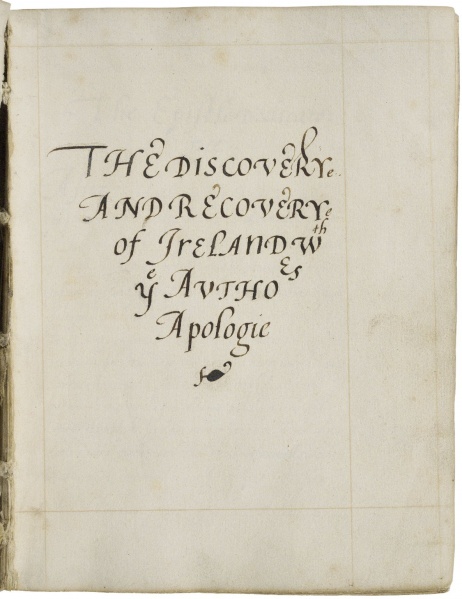 THE DISCOVERYe
AND RECOVERYe
of IRELAND Wth
ye AVTHORS
Apologie